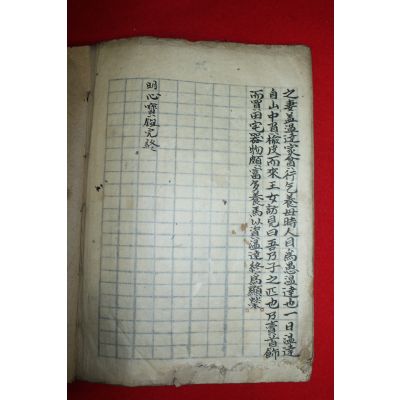 之妻盖溫達家貧行乞養母時人目爲愚溫達也一日溫達
自山中負楡皮而來王女訪見曰吾乃子之匹也乃賣首飾
而買田宅器物頗富多養馬以資溫達終爲顯榮
明心寶鑑完終